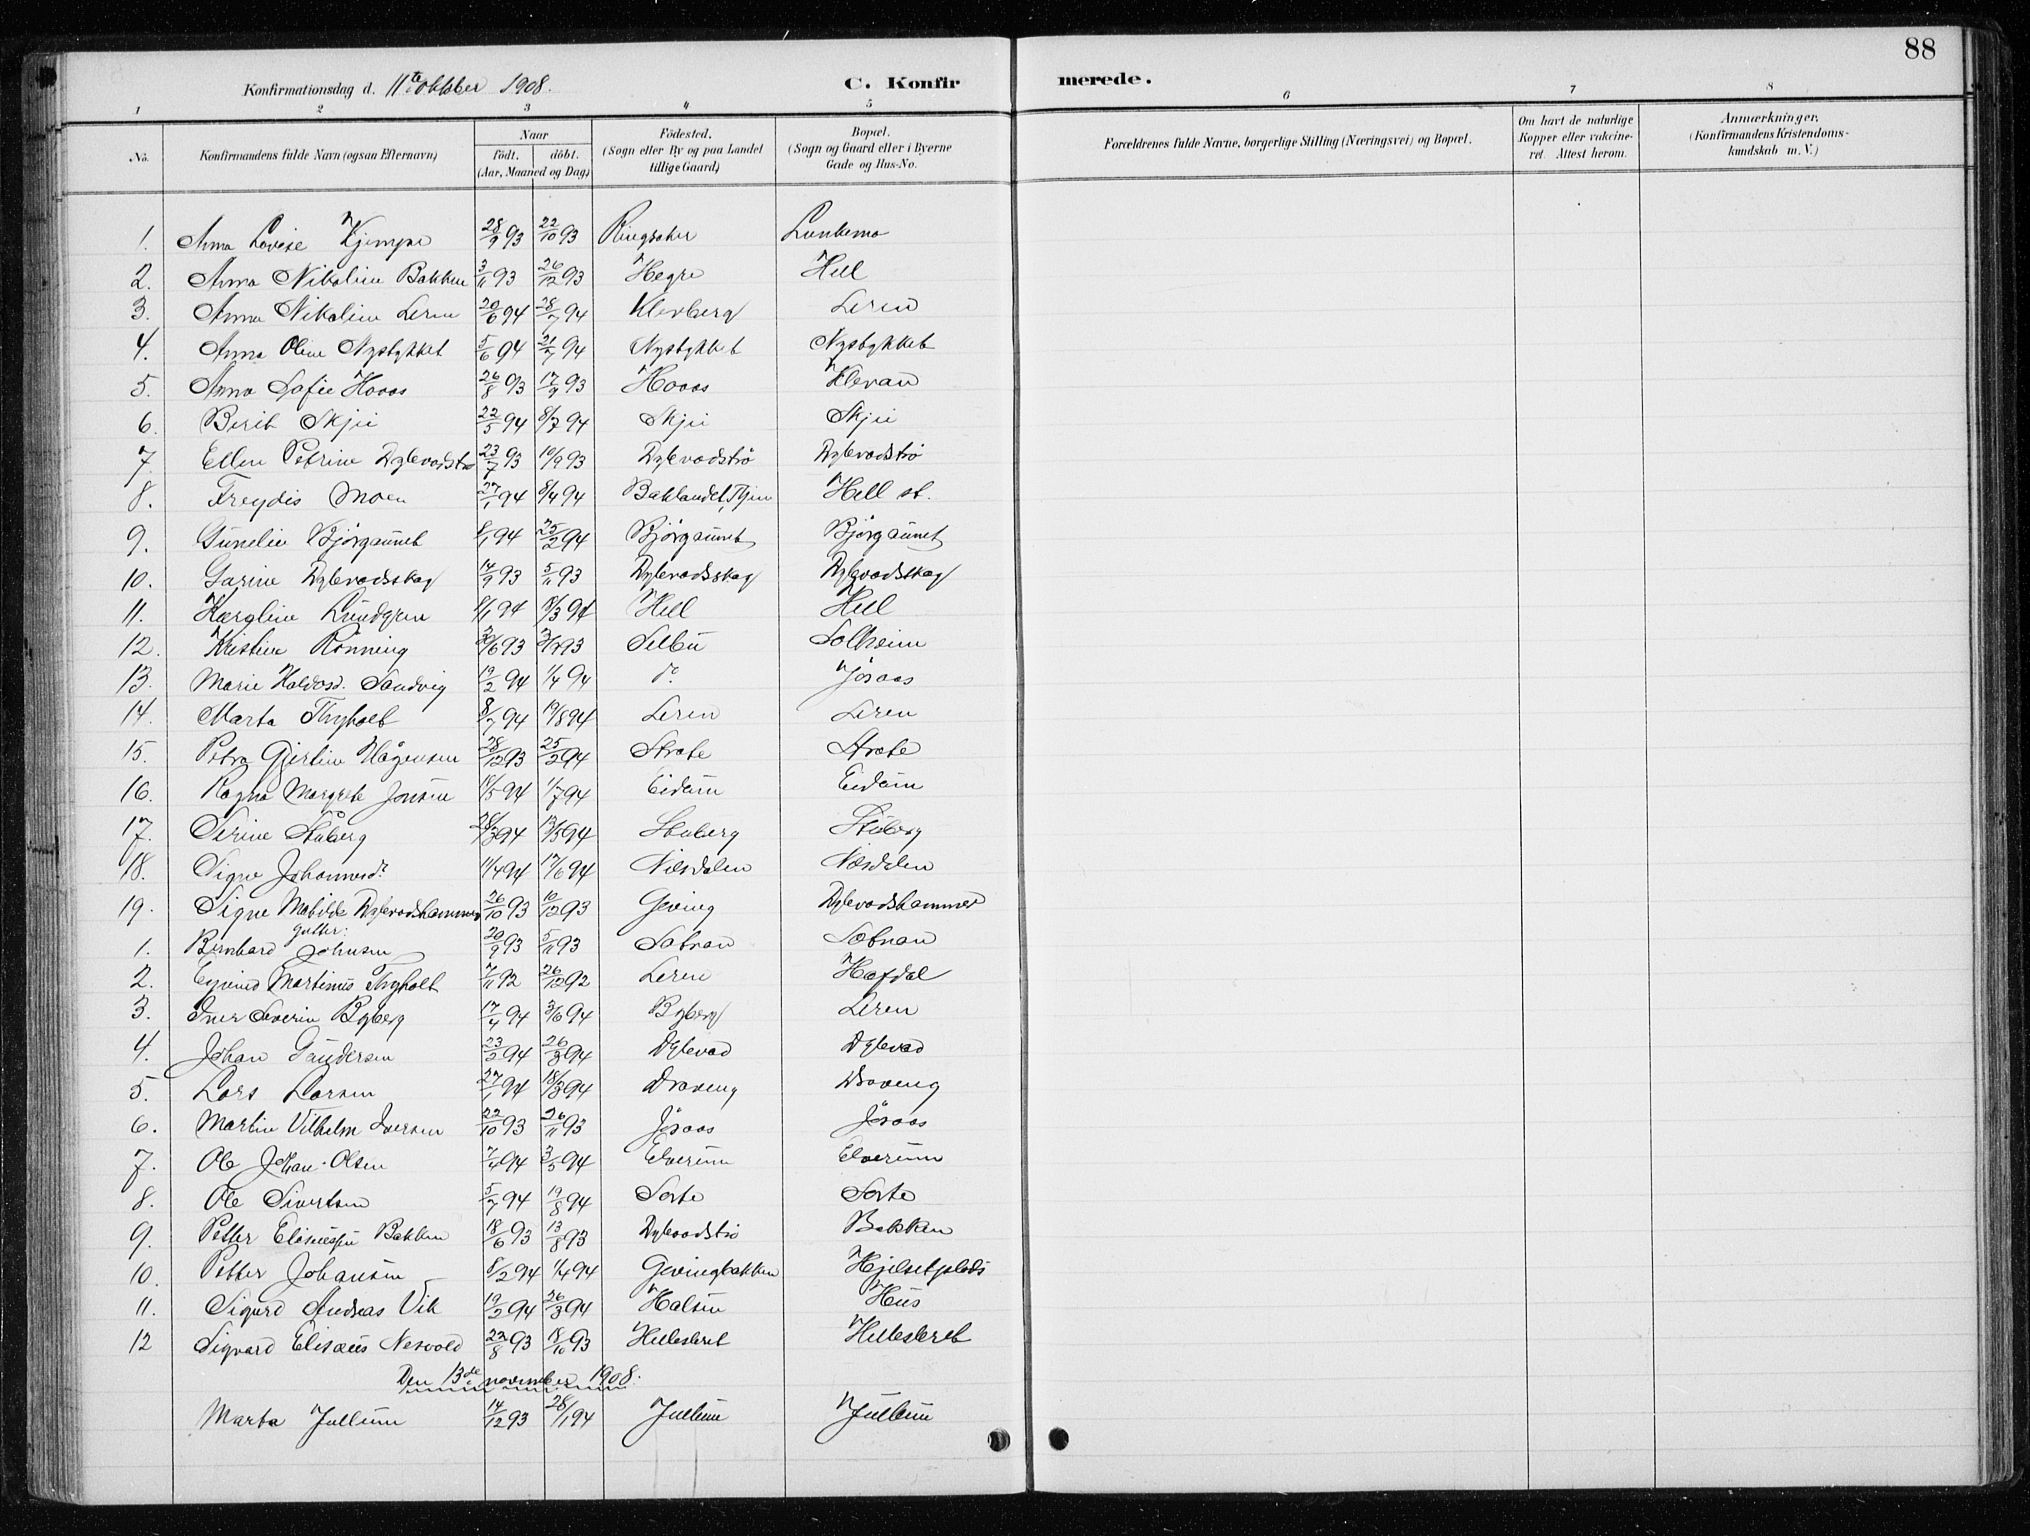 88
Konfirmationsdag d. 11te oktober 1908. C. Konfirmerede.
1 2 3 4 5 6 7 8
No. Konfirmandens fulde Navn (ogsaa Efternavn) Naar födt. döbt. (Aar, Maaned og Dag) Födested. (Sogn eller By og paa Landet tillige Gaard) Bopæl. (Sogn og Gaard eller i Byerne Gade og Hus-No. Forældrenes fulde Navne, borgerlige Stilling (Næringsvei) og Bopæl. Om havt de naturlige Kopper eller vakcineret. Attest herom. Anmærkninger. (Konfirmandens Kristendomskundskab m. V.)
1. Anna Lovise Kjempe 28/9 93 22/10 93 Ringsaker Lankemo
2. Anna Nikoline Bakken 3/11 93 26/12 93 Hegre Hell
3. Anna Nikoline Leren 20/6 94 28/7 94 Klevberg Leren
4. Anna Oline Nystykket 5/6 94 21/7 94 Nystykket Nystykket
5. Anna Sofie Hovos 26/8 93 17/9 93 Hovos Klevan
6. Berit Skjei 22/5 94 8/7 94 Skjei Skjei
7 Ellen Petrine Dyblevadstrø 23/7 93 10/9 93 Dyblevadstrø Dyblevadstrø
8. Freydis Moen 27/1 94 8/4 94 Baklandet, Thjem Hell st.
9. Gunelie Bjørgaunet 8/1 94 25/2 94 Bjørgaunet Bjørgaunet
10. Gurine Dyblevadsskog 14/9 93 5/11 93 Dyblevadsskog Dyblevadsskog
11. Karoline Lundgren 8/1 94 18/3 94 Hell Hell
12. Kristine Rönning 30/6 93 3/9 93 Selbu Solheim
13. Marie Haldosd. Sandvig 19/2 94 1/4 94 do Jøsaas
14. Marta Thyholt 8/7 94 19/8 94 Leren Leren
15. Petra Gjertine Hågensen 28/12 93 25/2 94 Strate Strate
16. Ragna Margrete Jonsen 18/5 94 1/7 94 Eidum Eidum
17. Serine Stuberg 28/3 94 13/5 94 Stuberg Stuberg
18. Signe Johannesdr 11/4 94 17/6 94 Nilsdalen Nilsdalen
19. Signe Matilde Dyblevadshammer 26/10 93 10/12 93 Geving Dyblevadshammer
Gutter:
1. Bernhard Johnsen 20/9 93 5/11 93 Sætnan Sætnan
2. Eyvind Martinus Thyholt 7/11 92 26/12 92 Leren Hafdal
3. Iver Severin Byberg 17/4 94 3/6 94 Byberg Leren
4. Johan Gundersen 23/2 94 26/3 94 Dyblevad Dyblevad
5. Lars Larsen 27/1 94 18/3 94 Draveng Draveng
6. Martin Vilhelm Iversen 22/10 93 26/11 93 Jøsaas Jøsaas
7. Ole Johan Olsen 7/4 94 3/5 94 Elverum Elverum
8. Ole Sivertsen 5/7 94 19/8 94 Sorte Sorte
9. Petter Eliseusen Bakken 18/6 93 13/8 93 Dyblevadstrø Bakken
10. Petter Johansen 8/2 94 1/4 94 Gevingbakken Hjelsetplads
11. Sigurd Andreas Vik 19/2 94 26/3 94 Halsen Hus
12 Sigvard Elisæus Nesvold 22/8 93 18/10 93 Hellesteret Hellesteret
Den 13de november 1908.
Marta Jullum 14/12 93 28/1 94 Jullum Jullum